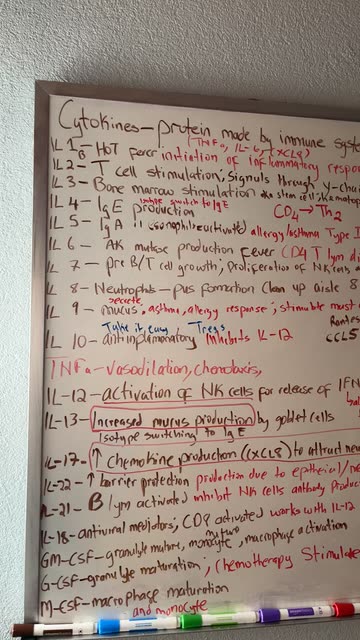 Cytokines - protein made by immune syst
(TNFα, IL-6, CXCL8)
IL 1 - HOT fever initiation of inflammatory respon
β
IL 2 - T cell stimulation; signals through γ-chai
IL 3 - Bone marrow stimulation stem cell; hematop
isotype switch to IgE
IL 4 - IgE production CD4 → Th2
IL 5 - IgA allergy/asthma Type I
IL 6 - production Fever (CD4 T lym di
IL 7 - Pre B/T cell growth; Proliferation of NK cells a
IL 8 - Neutrophils - pus formation Clean up aisle 8
secrete
IL 9 - mucus, asthma, allergy response; stimulate mast c
Take it easy Tregs Rantes
IL 10 - antiinflamatory inhibits IL-12 CCL5
TNFα - vasodilation, chemotaxis,
IL-12 - activation of NK cells for release of IFN
IL-13 - Increased mucus production by goblet cells
Isotype switching to IgE
IL-17 - ↑ Chemokine production (CXCL8) to attract neu
IL-22 - ↑ barrier protection production due to epitheical/ne
IL-21 - B lym activated inhibit NK cells antibody Produc
IL-18 - antiviral mediators; CD8 activated works with IL-12
mature
GM-CSF - granulyte mature, monocyte, macrophage activation
G-CSF - granulyte maturation; Chemotherapy Stimulate
M-CSF - macrophage maturation
and monocyte